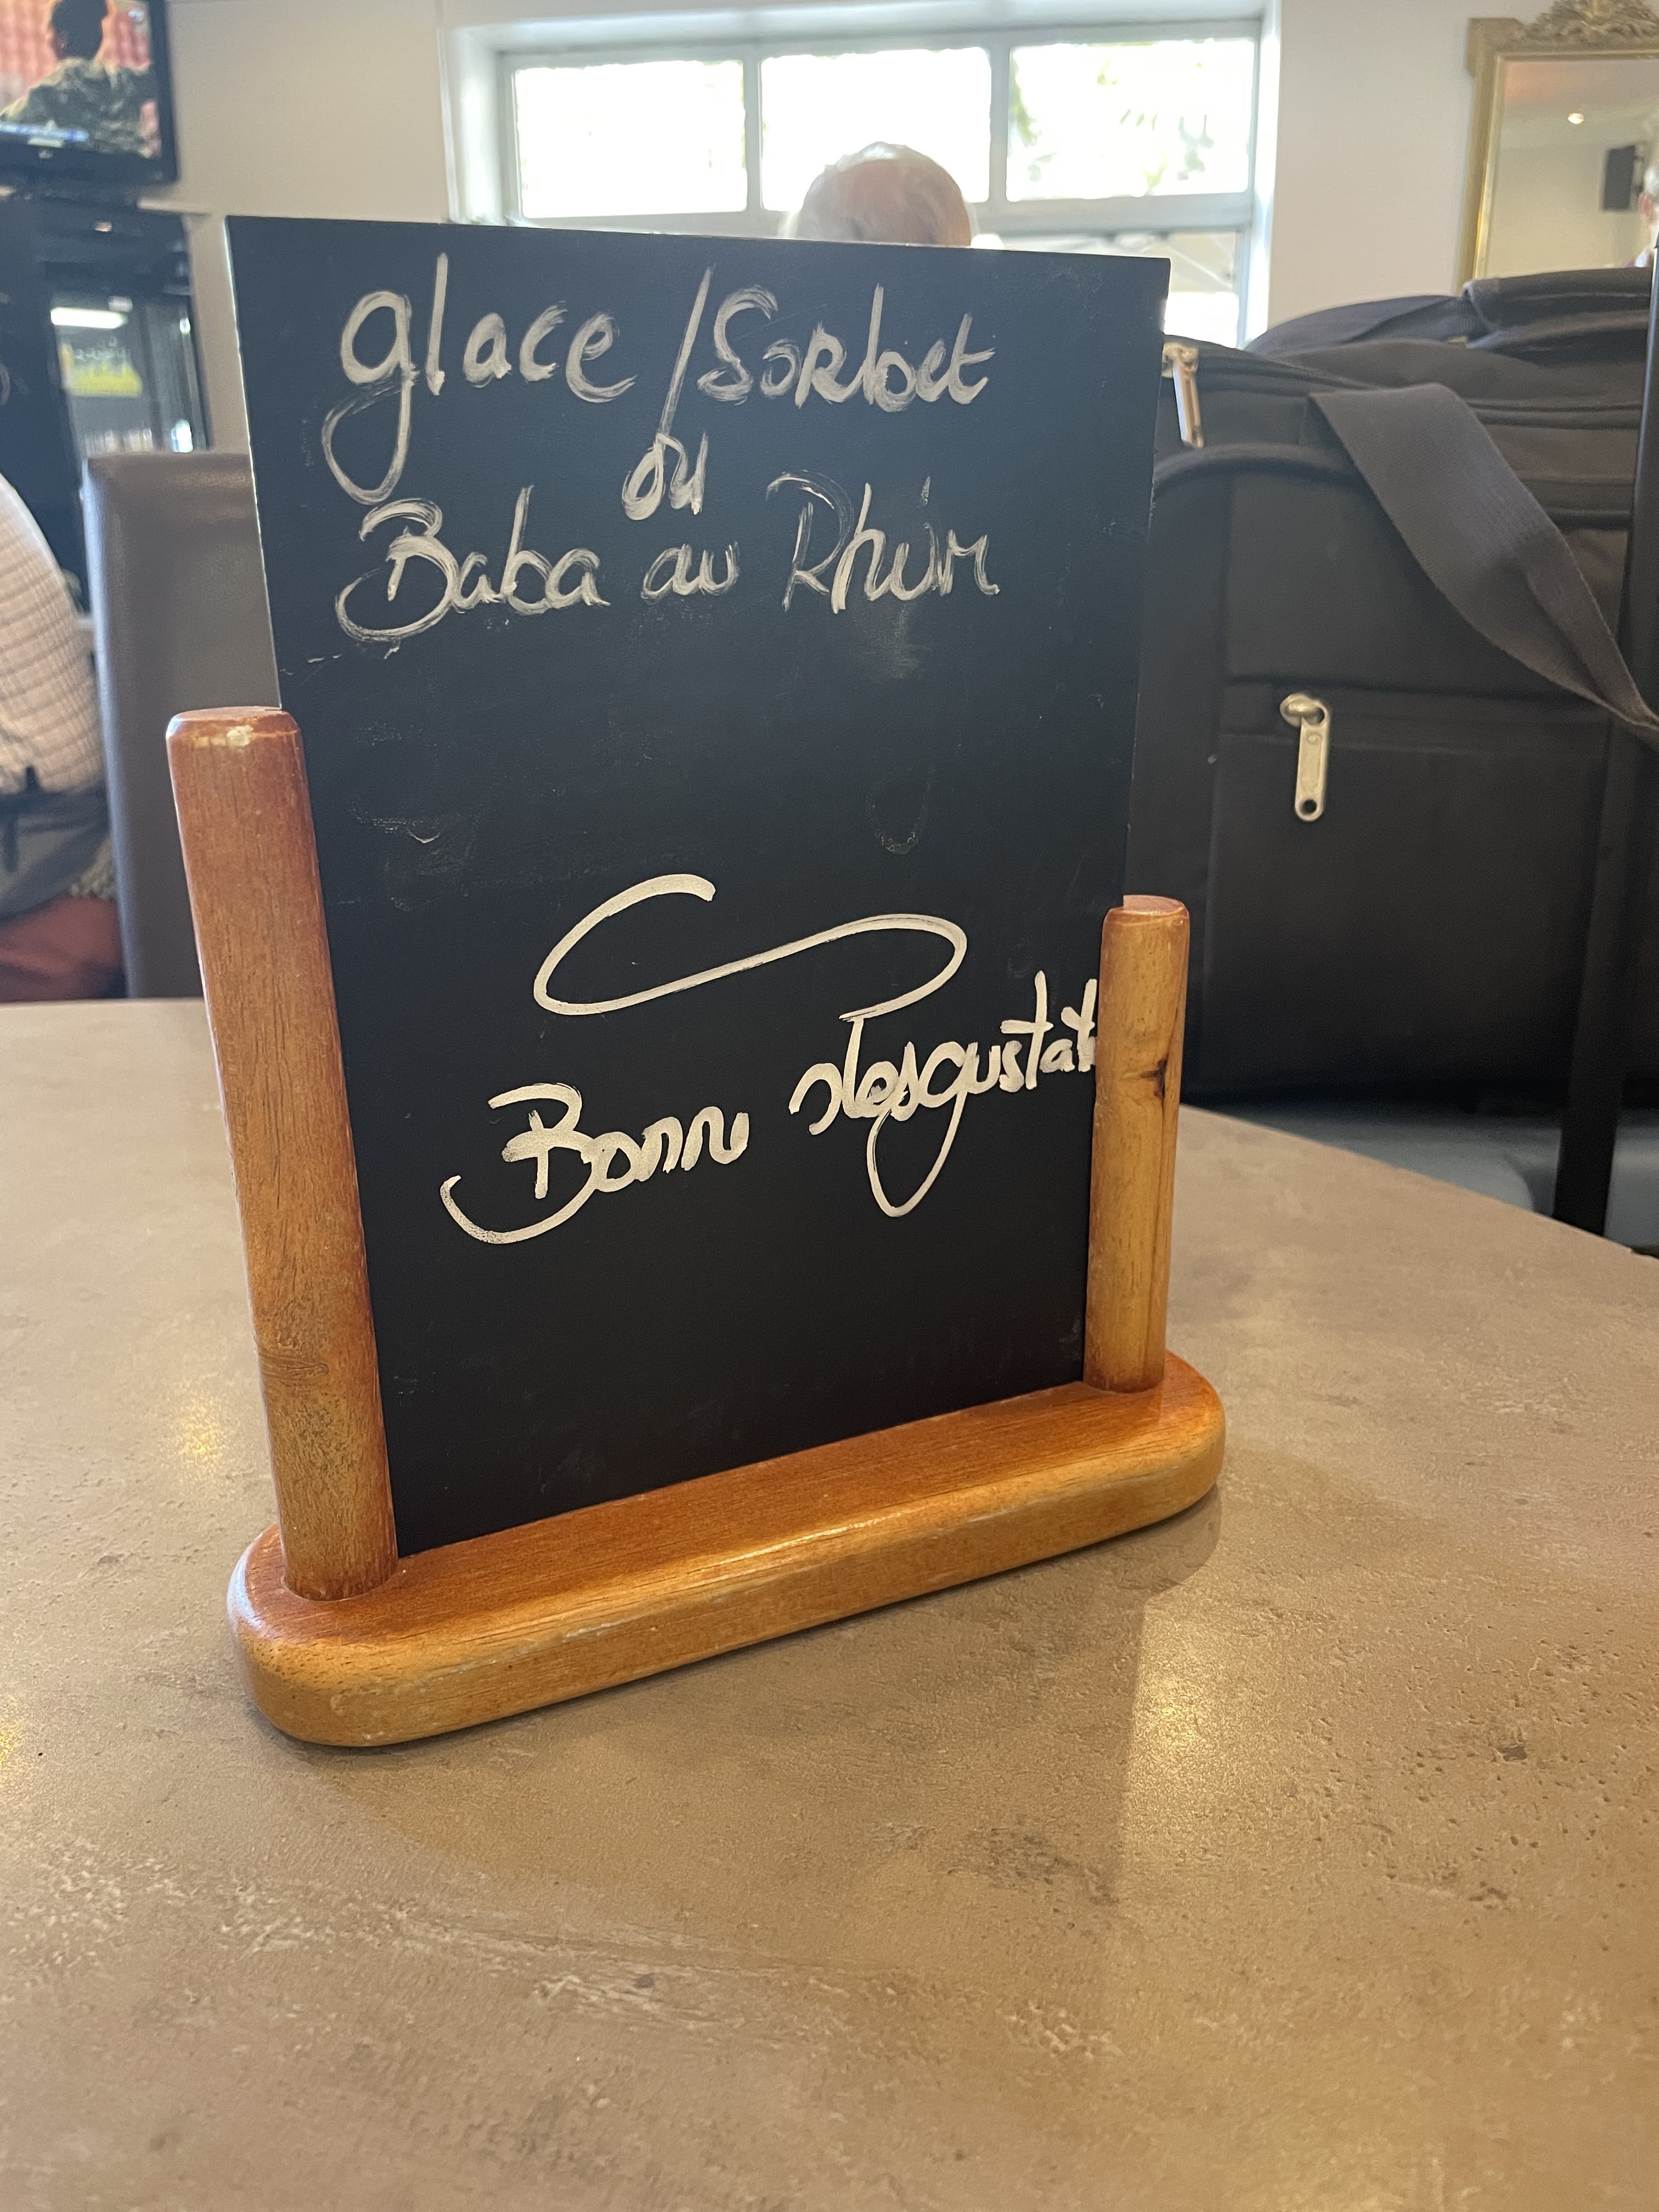 glace / Sorbet
ou
Baba au Rhum
Bonne desgustat